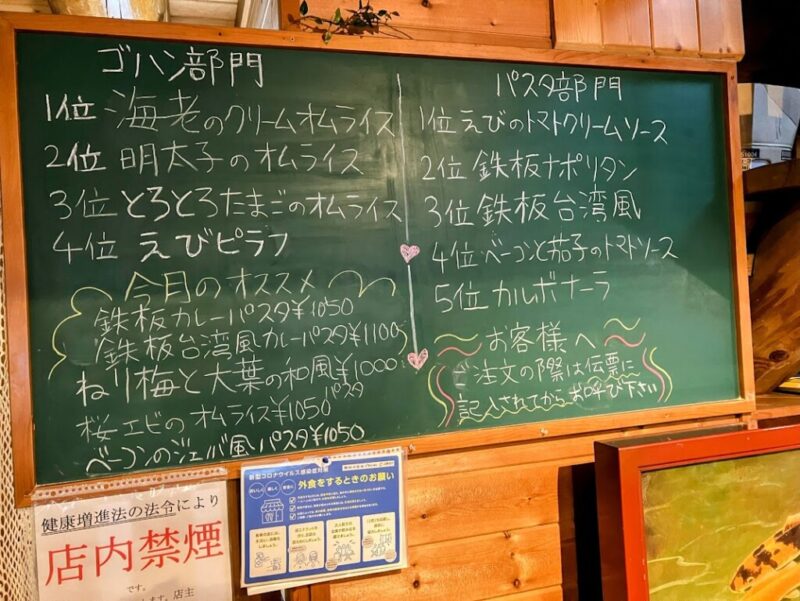 ゴハン部門
1位 海老のクリームオムライス
2位 明太子のオムライス
3位 とろとろたまごのオムライス
4位 えびピラフ
今月のオススメ
鉄板カレーパスタ¥1050
鉄板台湾風カレーパスタ¥1100
ねり梅と大葉の和風パスタ¥1000
桜エビのオムライス¥1050
ベーコンのジェノバ風パスタ¥1050
パスタ部門
1位 えびのトマトクリームソース
2位 鉄板ナポリタン
3位 鉄板台湾風
4位 ベーコンと茄子のトマトソース
5位 カルボナーラ
お客様へ
ご注文の際は伝票に
記入されてからお呼び下さい
健康増進法の法令により
店内禁煙
です。
店主
新型コロナウイルス感染症対策
外食をするときのお願い